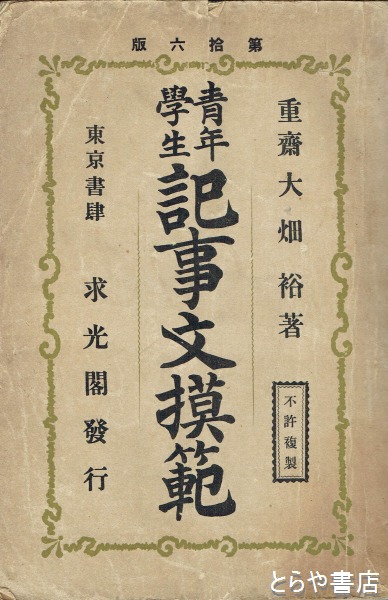 第拾六版
重齋大畑裕著
不許複製
青年
學生
記事文摸範
東京書肆 求光閣發行
とらや書店